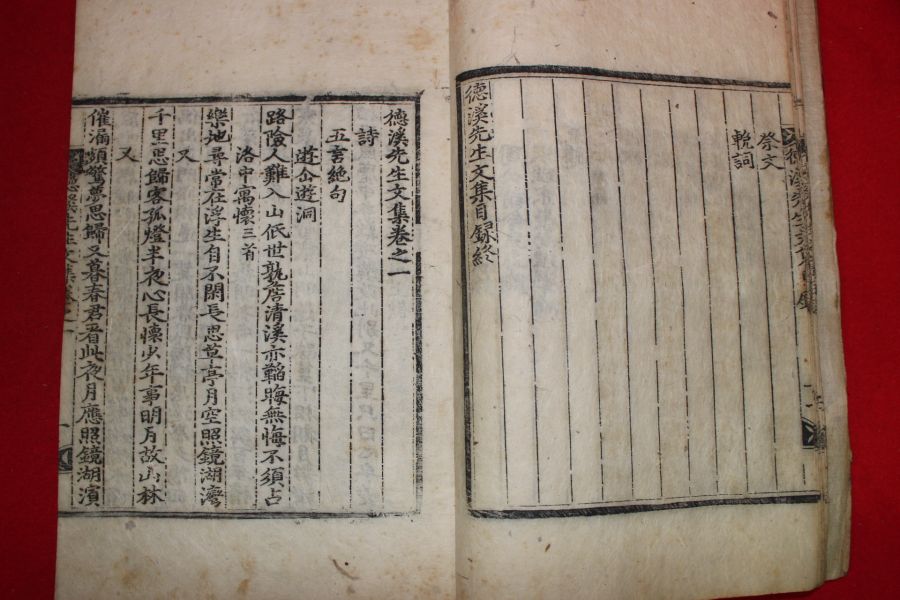 德溪先生文集目錄
祭文
輓詞
德溪先生文集目録終
德溪先生文集卷之一
詩
五言絶句
遊仚遊洞
路險人難入山低世孰詹清溪亦韜晦無悔不須占
洛中寓懷三首
樂地尋常在浮生自不閑長思草亭月空照鏡湖灣
又
千里思歸客孤燈半夜心長懷少年事明月故山林
又
催漏頻驚夢思歸又暮春君看此夜月應照鏡湖濱
德溪先生文集卷之一
一